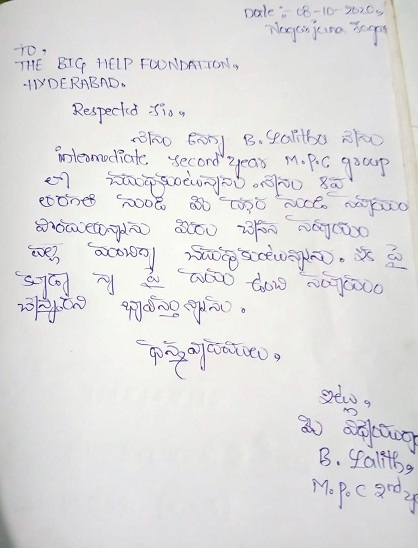 Date :- 08-10-2020,
Nagarjuna Sagar
TO.
THE BIG HELP FOUNDATION,
HYDERABAD.
Respected Sir,
నేను B. Lalitha నేను
intermediate second year M.P.C group
లో చదువుకుంటున్నాను. నేను 8వ
తరగతి నుండి మీ నుండి సహాయం
పొందుతున్నాను మీరు చేసిన సహాయం
వల్ల చదువుకుంటున్నాను. ఇక పై
కూడా నా పై దయ ఉంచి సహాయం
చేస్తారని భావిస్తున్నాను.
ధన్యవాదములు,
ఇట్లు,
మీ
B. Lalitha,
M.P.C 2nd